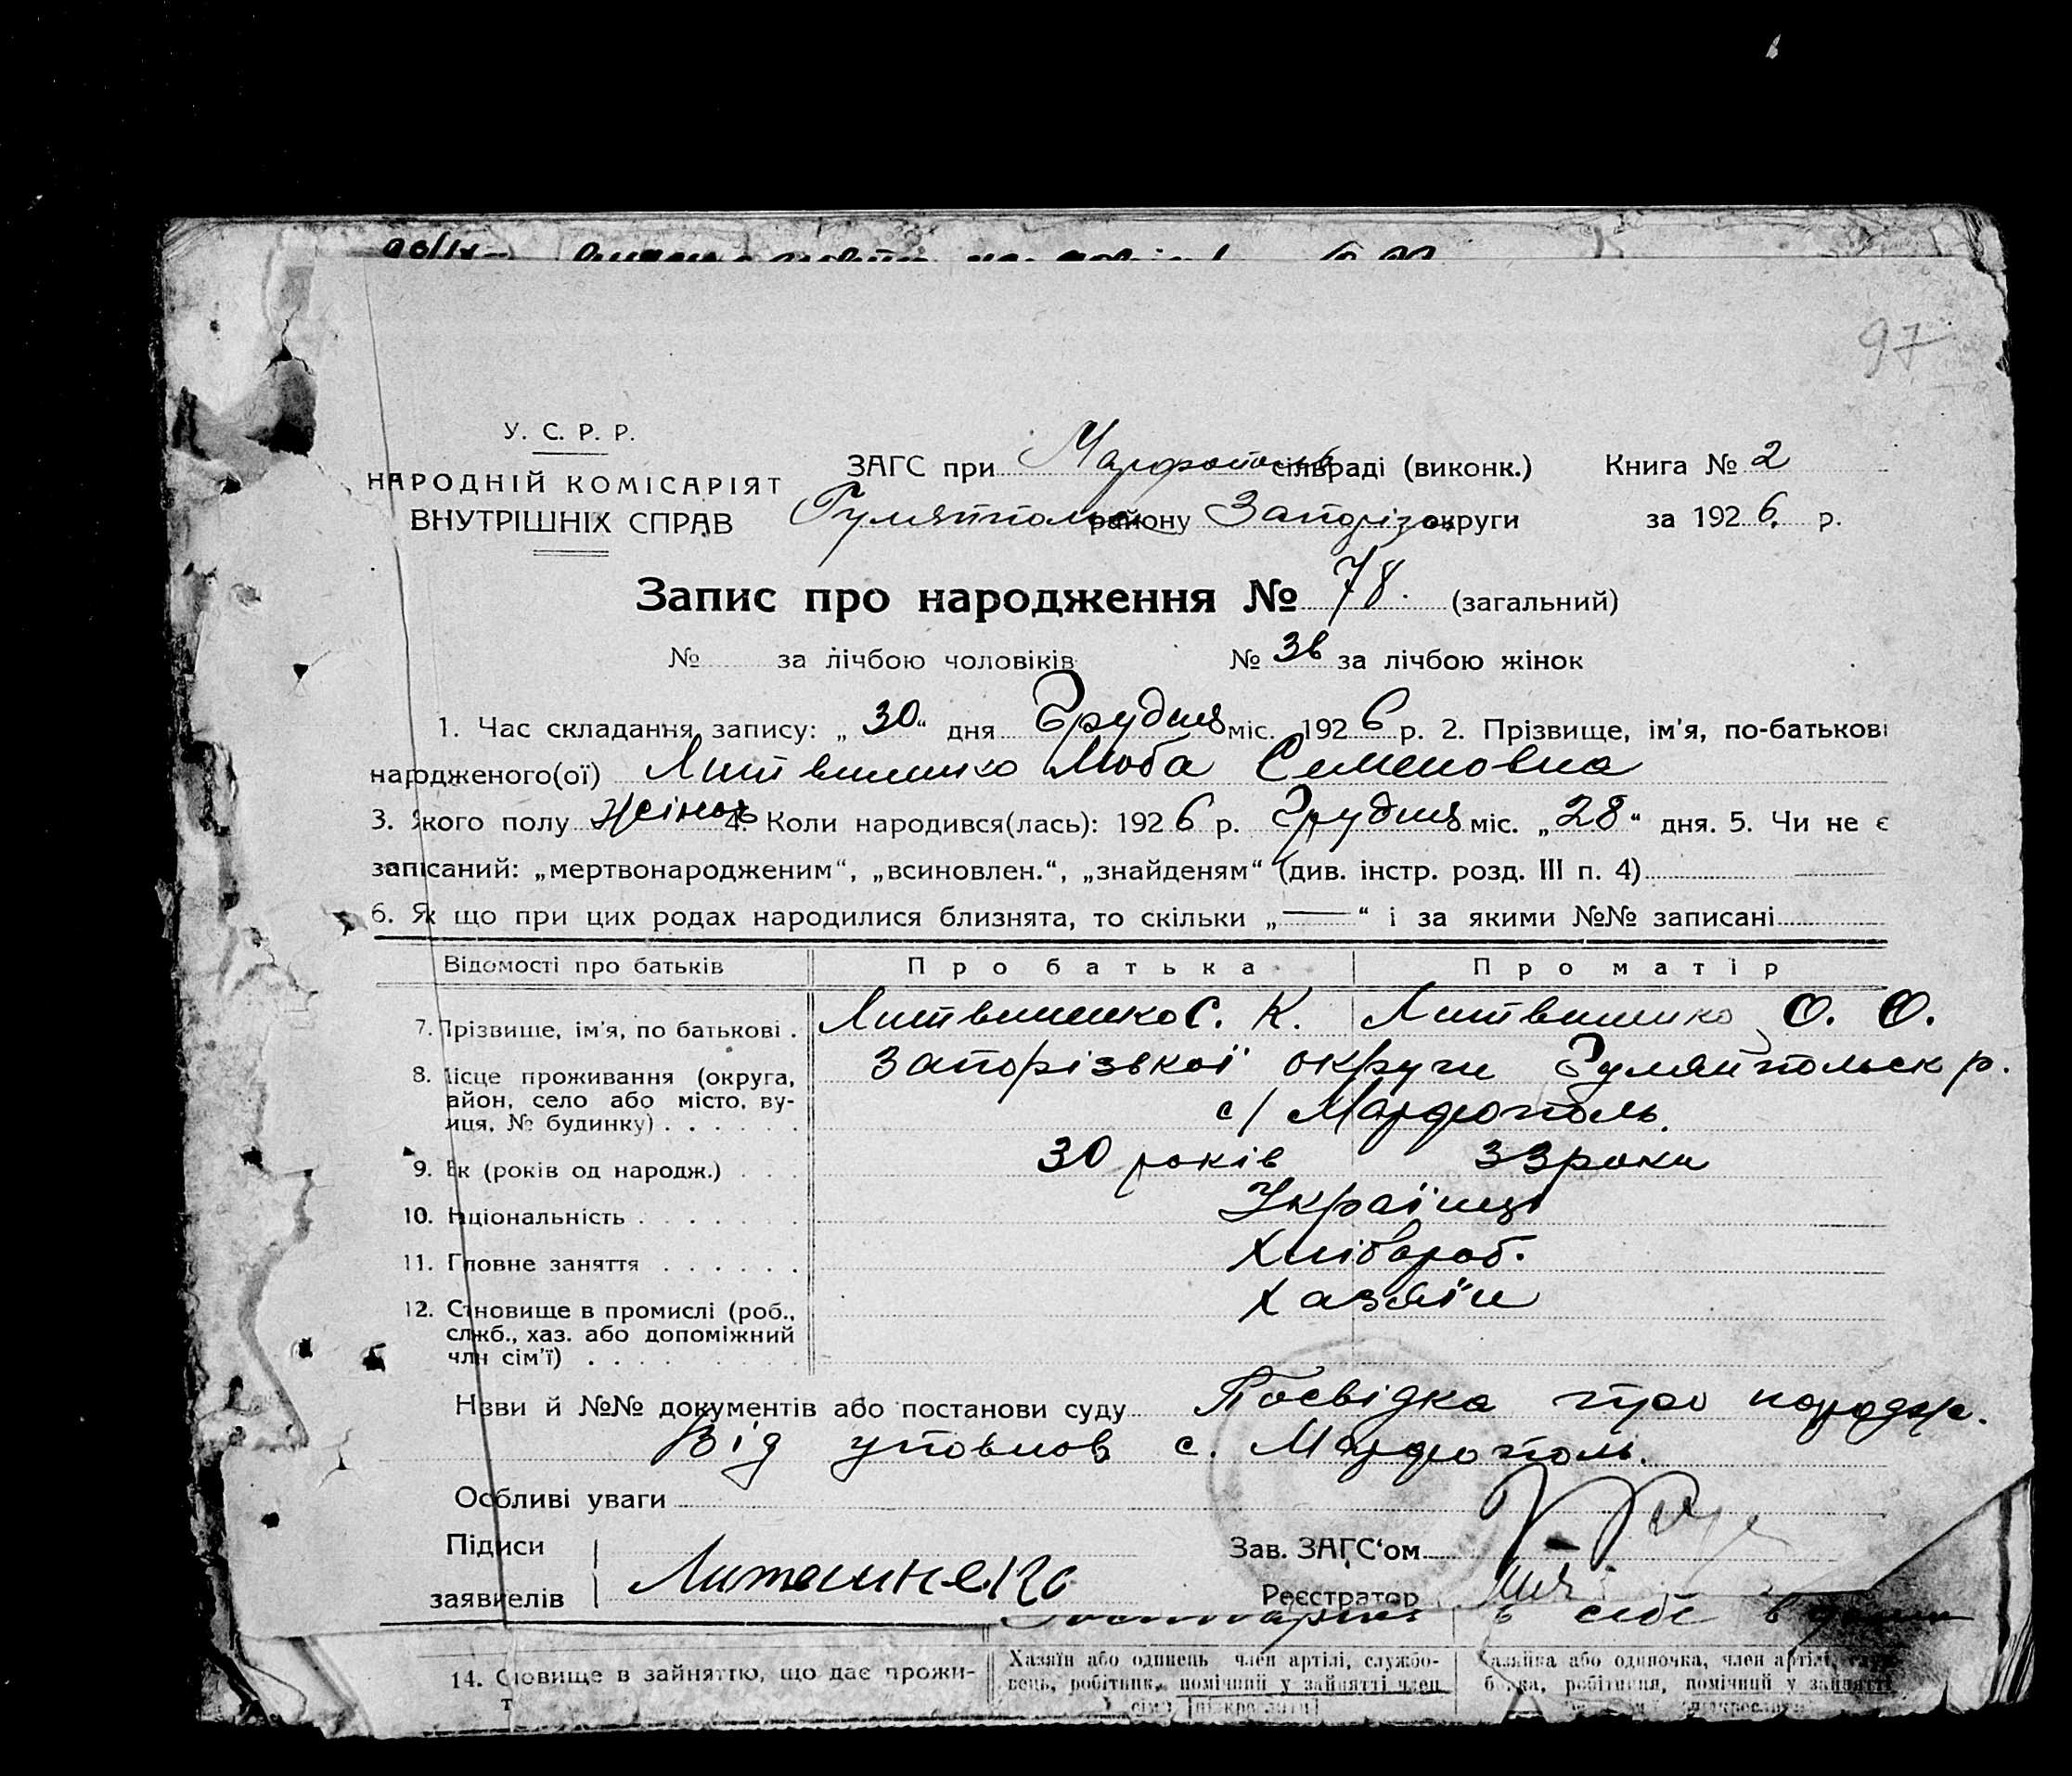 97
У. С. Р. Р.
НАРОДНІЙ КОМІСАРІЯТ
ВНУТРІШНІХ СПРАВ
ЗАГС при Марфопольсь сільраді (виконк.) Книга № 2
Гуляйпольс району Запорізь округи за 1926 р.
Запис про народження № 78. (загальний)
№ за лічбою чоловіків № 36 за лічбою жінок
1. Час складання запису: „30“ дня Грудня міс. 1926 р. 2. Прізвище, ім'я, по-батькові
народженого(ої) Литвиненко Люба Семеновна
3. Якого полу жіноч 4. Коли народився(лась): 1926 р. Грудня міс. „28“ дня. 5. Чи не є
записаний: „мертвонародженим“, „всиновлен.“, „знайденям“ (див. інстр. розд. III п. 4)
6. Як що при цих родах народилися близнята, то скільки „—“ і за якими №№ записані
Відомості про батьків Про батька Про матір
7. Прізвище, ім'я, по батькові . Литвиненко С. К. Литвиненко О. О.
8. Місце проживання (округа, Запорізької округи Гуляйпольск р.
айон, село або місто, ву- с/ Марфополь.
иця, № будинку)
9. Вік (років од народж.) 30 років 33 роки
10. Національність Українці
11. Головне заняття Хлібороб.
12. Становище в промислі (роб., Хазяїн
служб., хаз. або допоміжний
член сім'ї)
Назви й №№ документів або постанови суду Посвідка про народж.
Від уповнов с. Марфополь.
Особливі уваги
Підписи Зав. ЗАГС'ом
заявителів Литвиненко Реєстратор
14. Становище в зайняттю, що дає прожи- Хазяїн або одинець член артілі, службо- Хазяйка або одиночка, член артілі,
вець, робітник, помічний у зайнятті член робітниця, помічний у зайнятті